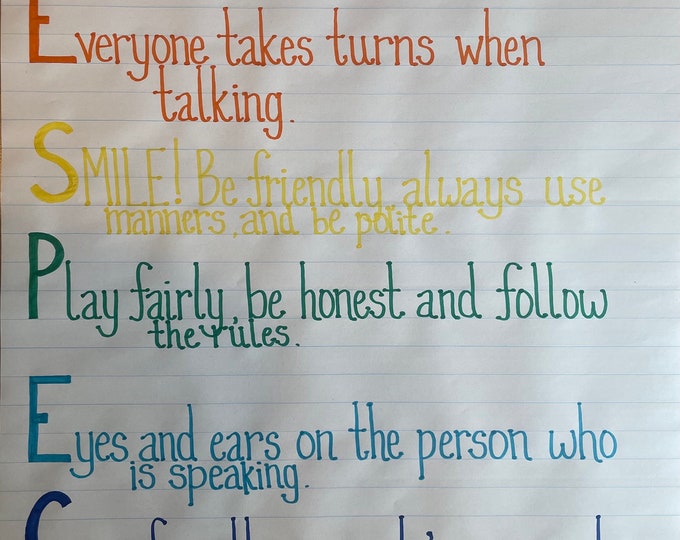 Everyone takes turns when
talking.
SMILE! Be friendly, always use
manners, and be polite.
Play fairly, be honest and follow
the rules.
Eyes and ears on the person who
is speaking.